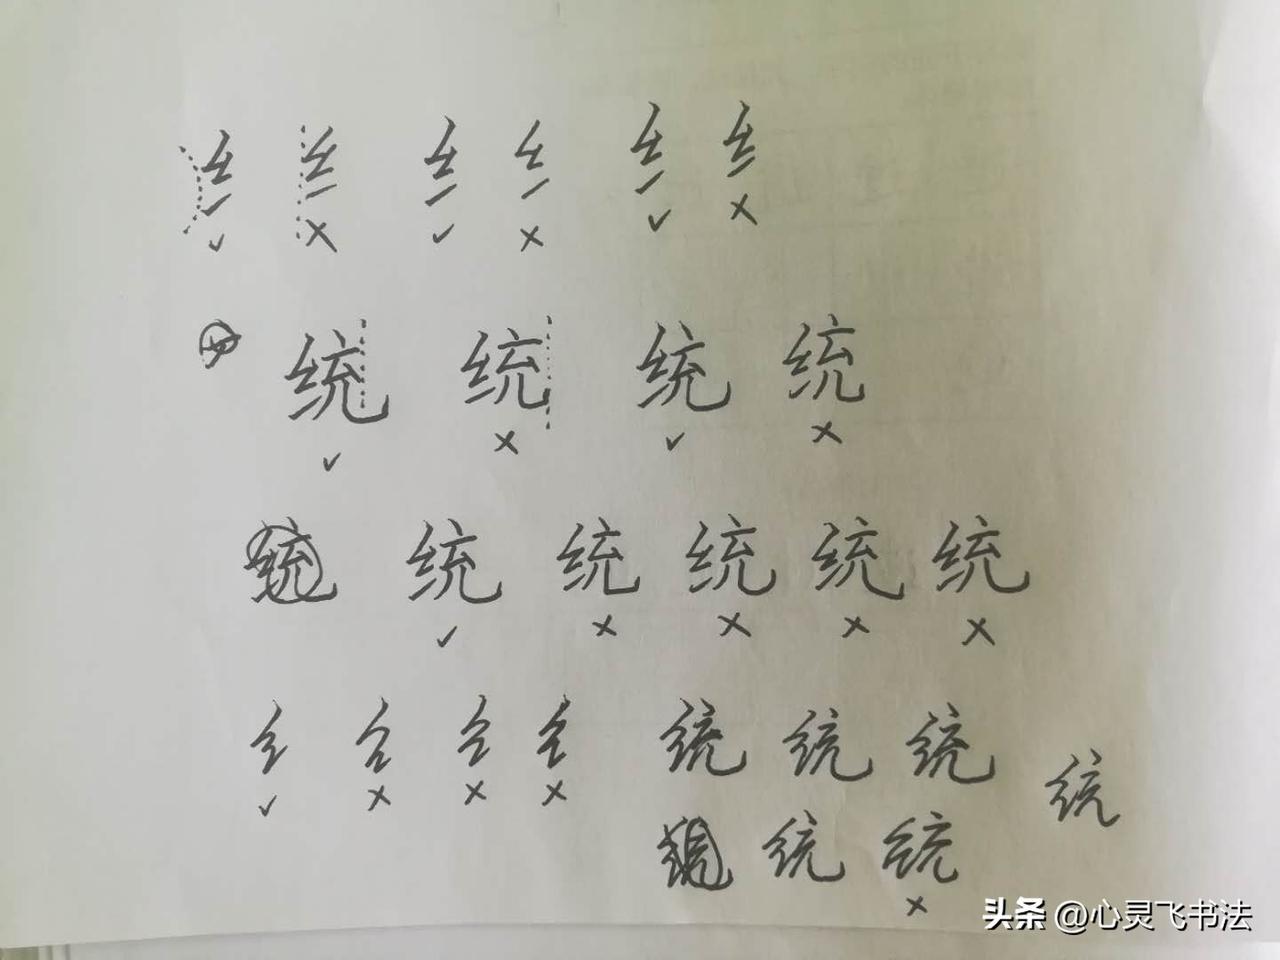 纟 纟 纟 纟 纟 纟
✓ × ✓ × ✓ ×
统 统 统 统
✓ × ✓ ×
统 统 统 统 统 统
✓ × × × ×
纟 纟 纟 纟 统 统 统
✓ × × × 统
统 统
×
头条 @心灵飞书法